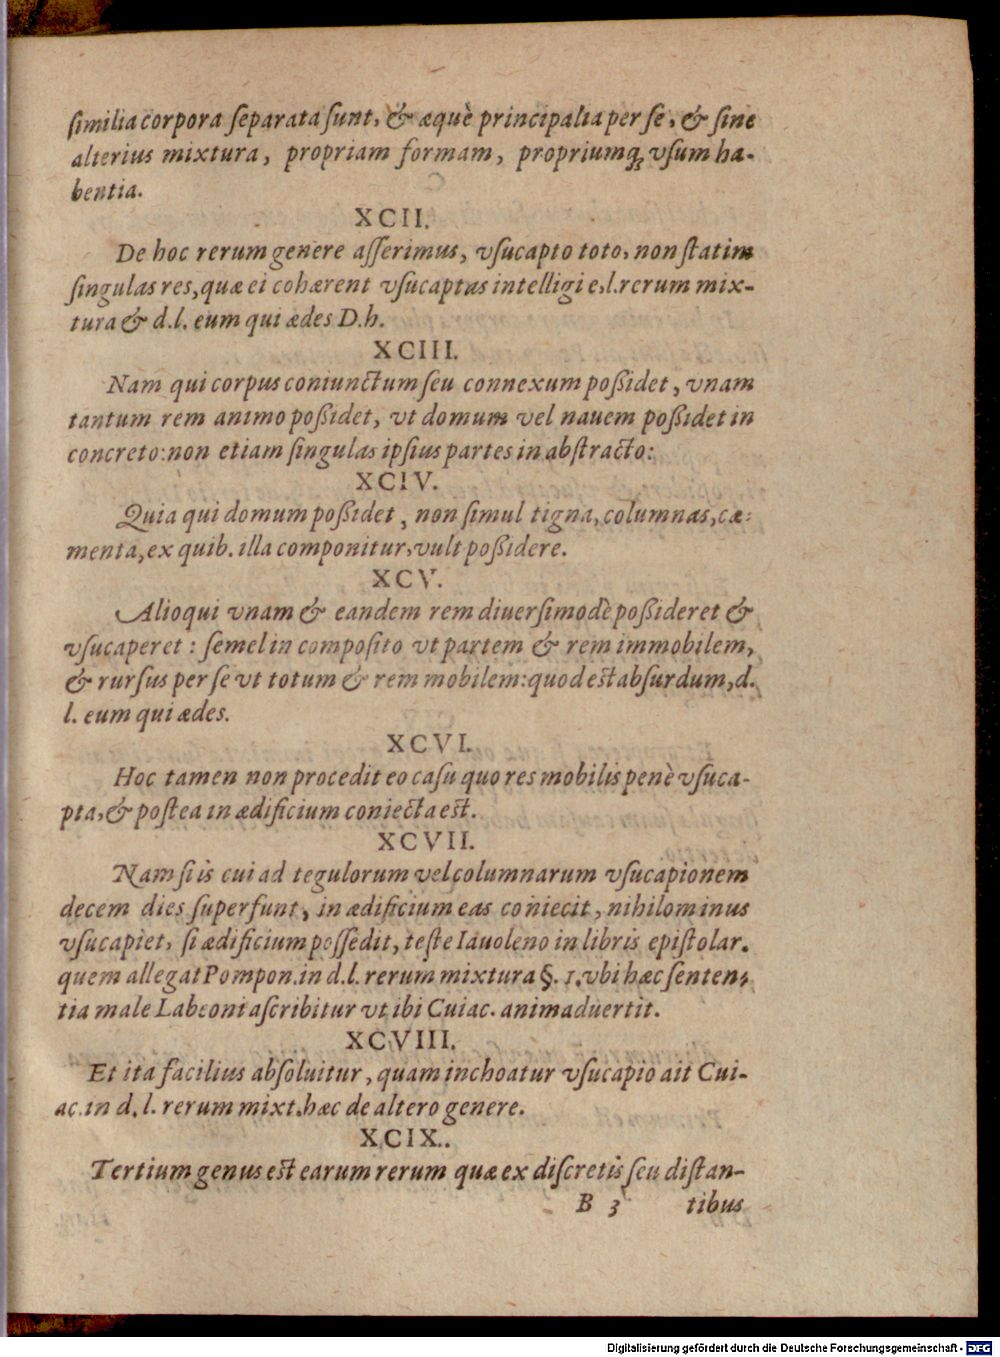 ſimilia corpora ſeparata ſunt, & æquè principalia per ſe, & ſine
alterius mixtura, propriam formam, propriumq; vſum ha-
bentia.
XCII.
De hoc rerum genere aſſerimus, vſucapto toto, non ſtatim
ſingulas res, quæ ei cohærent vſucaptas intelligi e, l. rerum mix-
tura & d.l. eum qui ædes D.h.
XCIII.
Nam qui corpus coniunctum ſeu connexum poßidet, vnam
tantum rem animo poßidet, vt domum vel nauem poßidet in
concreto: non etiam ſingulas ipſius partes in abſtracto:
XCIV.
Quia qui domum poßidet, non ſimul tigna, columnas, cæ-
menta, ex quib. illa componitur, vult poßidere.
XCV.
Alioqui vnam & eandem rem diuerſimodè poßideret &
vſucaperet: ſemel in compoſito vt partem & rem immobilem,
& rurſus per ſe vt totum & rem mobilem: quod eſt abſurdum, d.
l. eum qui ædes.
XCVI.
Hoc tamen non procedit eo caſu quo res mobilis penè vſuca-
pta, & poſtea in ædificium coniecta eſt.
XCVII.
Nam ſi is cui ad tegulorum vel columnarum vſucapionem
decem dies ſuperſunt, in ædificium eas coniecit, nihilominus
vſucapiet, ſi ædificium poſſedit, teſte Iauoleno in libris epiſtolar.
quem allegat Pompon. in d.l. rerum mixtura §. 1. vbi hæc ſenten-
tia male Labeoni aſcribitur vt ibi Cuiac. animaduertit.
XCVIII.
Et ita facilius abſoluitur, quam inchoatur vſucapio ait Cui-
ac. in d. l. rerum mixt. hæc de altero genere.
XCIX.
Tertium genus eſt earum rerum quæ ex diſcretis ſeu diſtan-
B 3 tibus
Digitalisierung gefördert durch die Deutsche Forschungsgemeinschaft - DFG